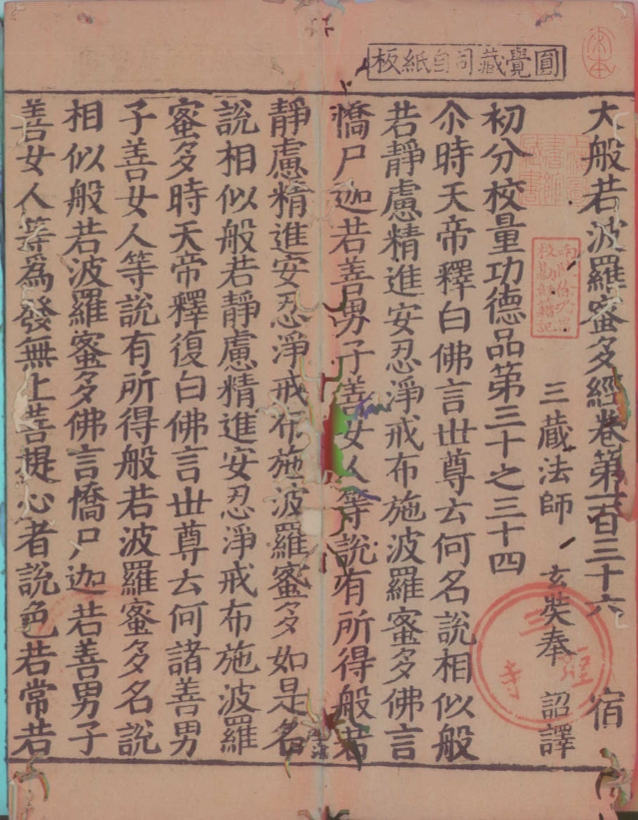 圓覺藏司自紙板
大般若波羅蜜多經卷第一百三十六 宿
三藏法師 玄奘奉 詔譯
初分校量功德品第三十之三十四
尒時天帝釋白佛言世尊云何名說相似般
若靜慮精進安忍淨戒布施波羅蜜多佛言
憍尸迦若善男子善女人等說有所得般若
靜慮精進安忍淨戒布施波羅蜜多如是名
說相似般若靜慮精進安忍淨戒布施波羅
蜜多時天帝釋復白佛言世尊云何諸善男
子善女人等說有所得般若波羅蜜多名說
相似般若波羅蜜多佛言憍尸迦若善男子
善女人等爲發無上菩提心者說色若常若
三聖寺